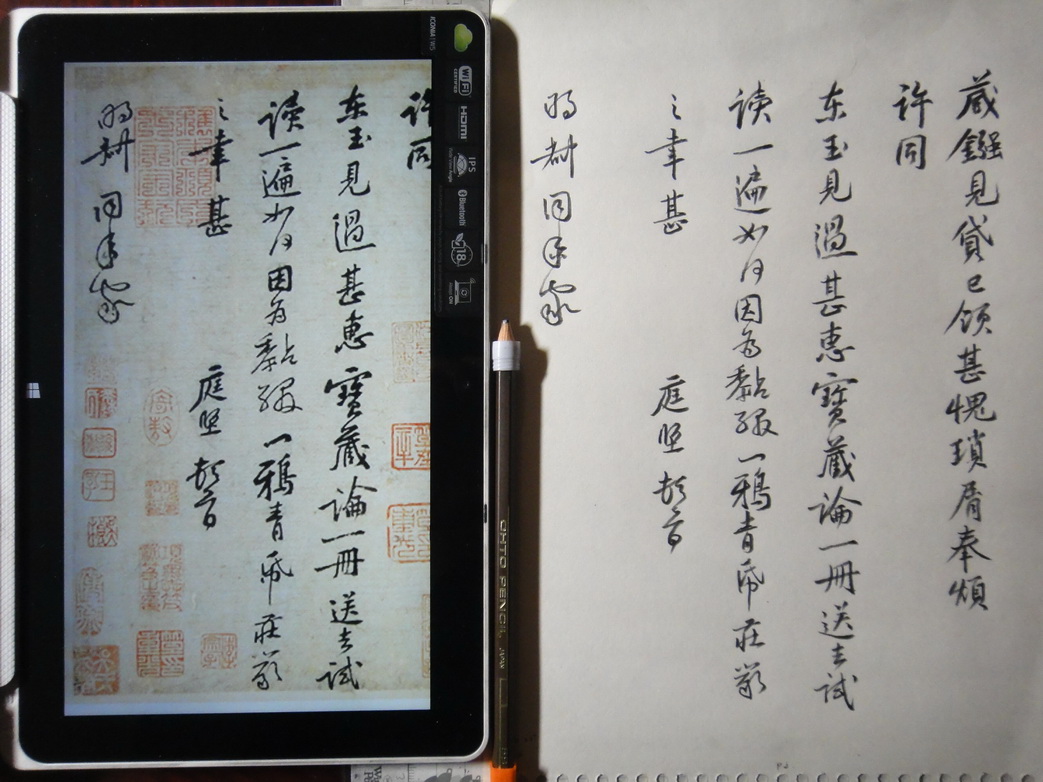 藏鏹見貸已領甚愧瑣屑奉煩
許同
东玉見過甚惠寶藏論一冊送去試
读一遍如何因為黏綴一鴉青帋莊嚴
之幸甚 庭堅頓首
明叔同年家
許同
东玉見過甚惠寶藏論一冊送去試
读一遍如何因為黏綴一鴉青帋莊嚴
之幸甚 庭堅頓首
明叔同年家
ICONIA W5
WiFi
CERTIFIED
HDMI
IPS
Bluetooth
18
OHTO PENCIL JAPAN